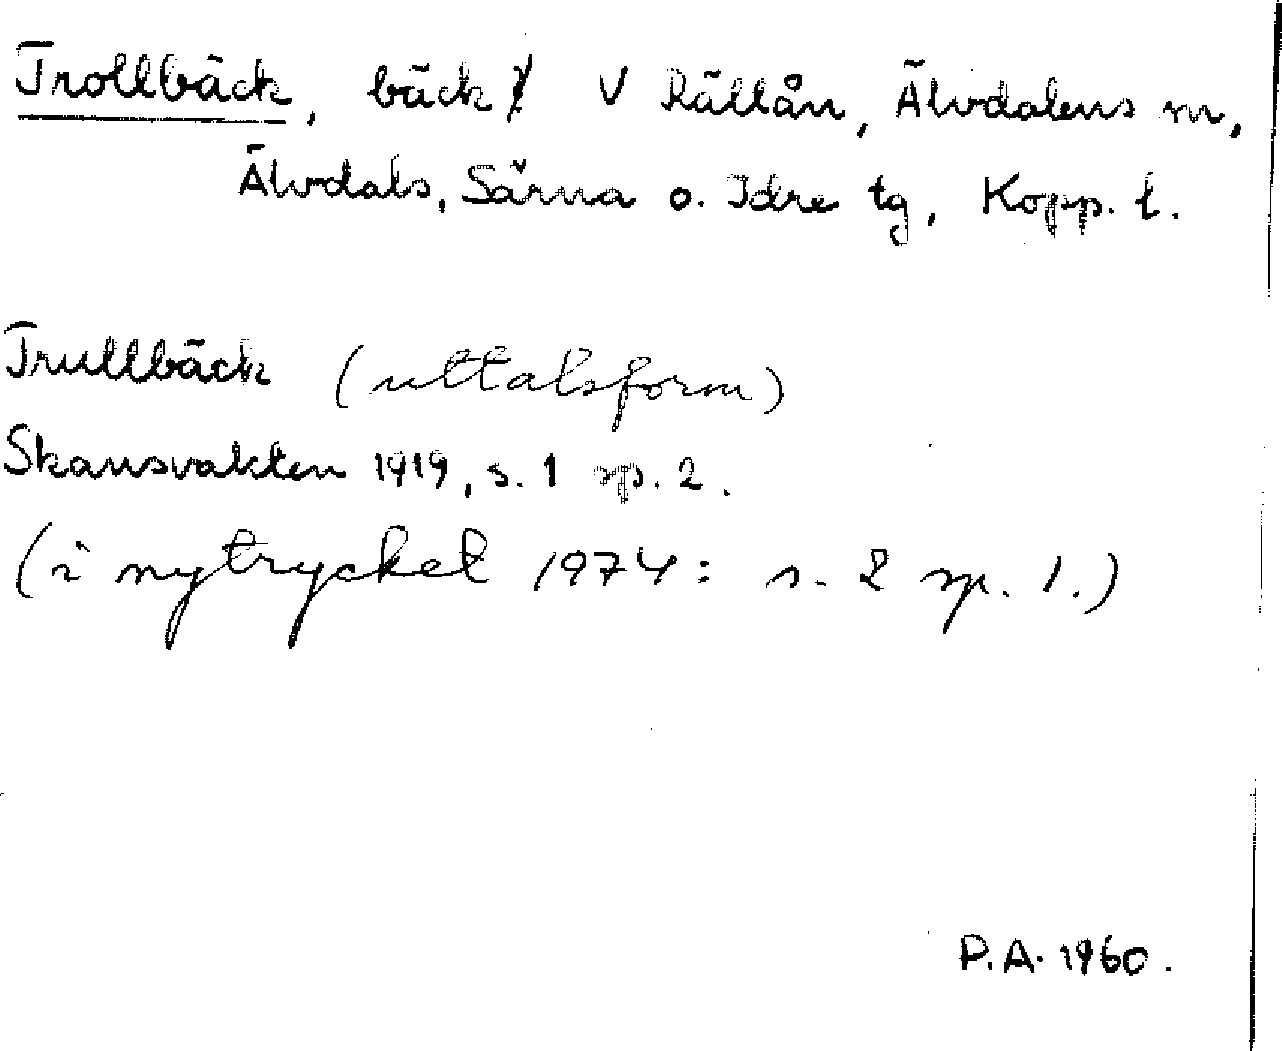 Trollbäck, bäck V Rällån, Älvdalens sn,
Älvdals, Särna o. Idre tg, Kopp. l.
Trullbäck (uttalsform)
Skansvakten 1919, s. 1 sp. 2.
(i nytrycket 1974: s. 2 sp. 1.)
P.A. 1960.